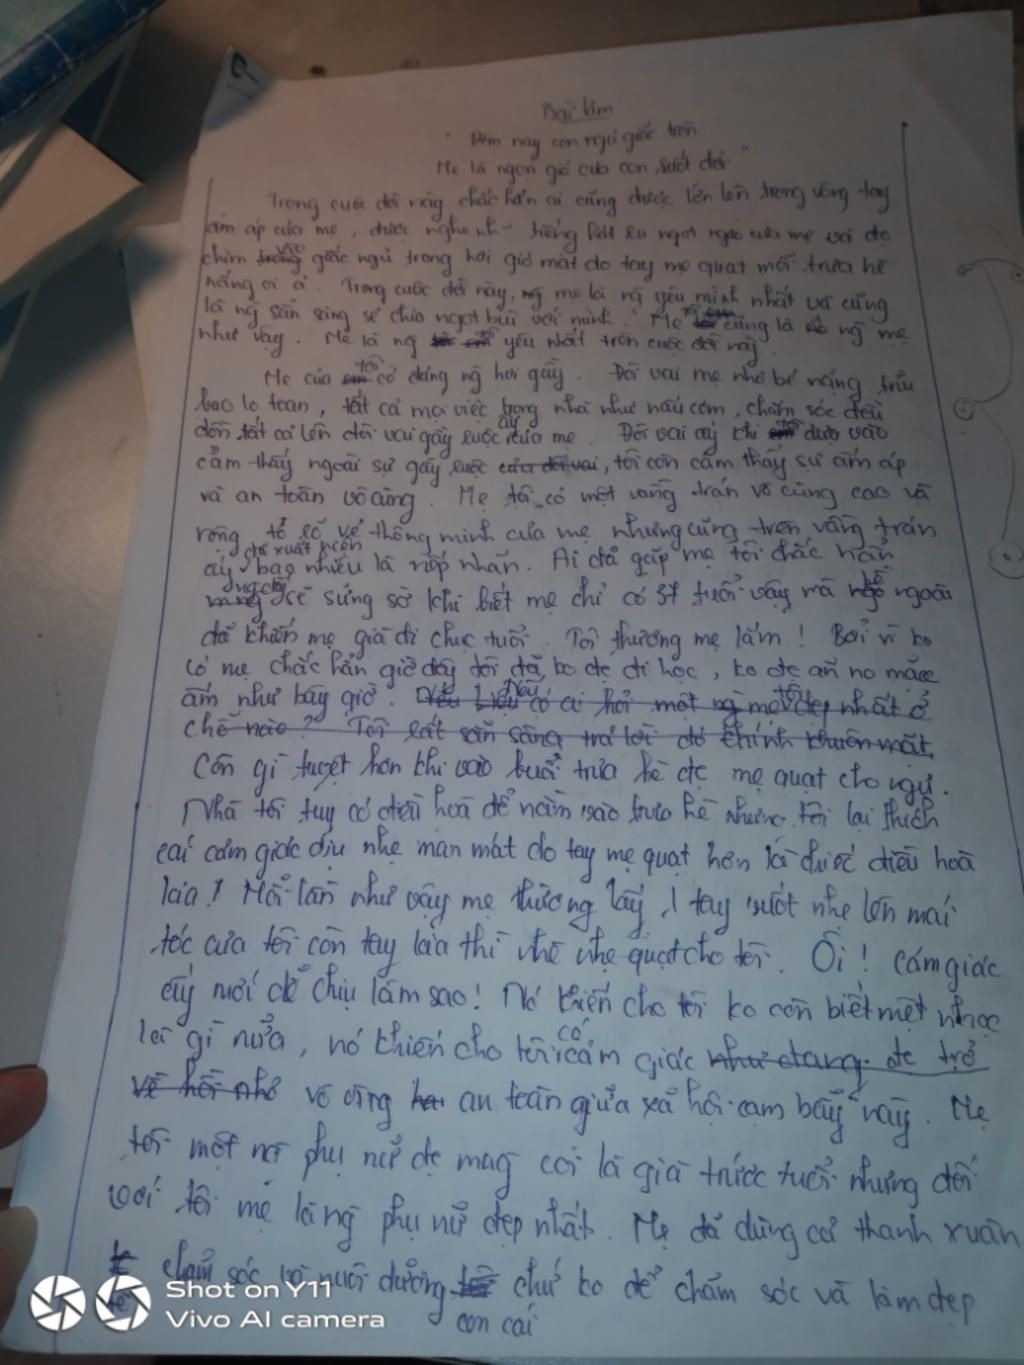 Bài làm
" Đêm nay con ngủ giấc tròn
Mẹ là ngọn gió của con suốt đời "
Trong cuộc đời này chắc hẳn ai cũng được lớn lên trong vòng tay
ấm áp của mẹ, được nghe tiếng hát ru ngọt ngào của mẹ và đc
chìm vào giấc ngủ trong hơi gió mát do tay mẹ quạt mỗi trưa hè
nắng oi ả. Trong cuộc đời này, ng mẹ là ng yêu mình nhất và cũng
là ng sẵn sàng sẻ chia ngọt bùi với mình. Mẹ tôi cũng là ng mẹ
như vậy. Mẹ là ng yêu nhất trên cuộc đời này.
Mẹ của tôi có dáng ng hơi gầy. Đôi vai mẹ nhỏ bé nặng trĩu
bao lo toan, tất cả mọi việc trong nhà như nấu cơm, chăm sóc đều
dồn tất cả lên đôi vai gầy guộc ấy của mẹ. Đôi vai ấy khi dựa vào
cảm thấy ngoài sự gầy guộc của đôi vai, tôi còn cảm thấy sự ấm áp
và an toàn vô cùng. Mẹ tôi có một vầng trán vô cùng cao và
rộng tỏ rõ vẻ thông minh của mẹ nhưng cũng trên vầng trán
ấy đã xuất hiện bao nhiêu là nếp nhăn. Ai đã gặp mẹ tôi chắc hẳn
sẽ sửng sờ khi biết mẹ chỉ có 37 tuổi vậy mà bề ngoài
đã khiến mẹ già đi chục tuổi. Tôi thương mẹ lắm! Bởi vì ko
có mẹ chắc hẳn giờ đây tôi đã ko đc đi học, ko đc ăn no mặc
ấm như bây giờ. Nếu có ai hỏi một ng mẹ tôi đẹp nhất ở
chỗ nào? Tôi rất sẵn sàng trả lời đó chính khuôn mặt.
Còn gì tuyệt hơn khi vào buổi trưa hè đc mẹ quạt cho ngủ.
Nhà tôi tuy có điều hoà để nằm vào trưa hè nhưng tôi lại thích
cái cảm giác dịu nhẹ man mát do tay mẹ quạt hơn là được điều hoà
lùa! Mỗi lần như vậy mẹ thường lấy 1 tay vuốt nhẹ lên mái
tóc của tôi còn tay kia thì nhè nhẹ quạt cho tôi. Ôi! Cảm giác
ấy mới dễ chịu làm sao! Nó khiến cho tôi ko còn biết mệt nhọc
là gì nữa, nó khiến cho tôi có cảm giác như đang đc trở
về hồi nhỏ vô cùng an toàn giữa xã hội cạm bẫy này. Mẹ
tôi một ng phụ nữ đc mọi coi là già trước tuổi nhưng đối
với tôi mẹ là ng phụ nữ đẹp nhất. Mẹ đã dùng cả thanh xuân
chăm sóc và nuôi dưỡng con cái chứ ko để chăm sóc và làm đẹp
Shot on Y11
Vivo AI camera